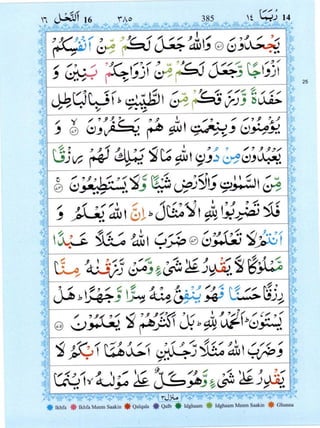 ١٦ النحل 16 ٣٨٥ 385 ١٤ ربما 14
يَجْحَدُوْنَ ۝ وَاللّٰهُ جَعَلَ لَكُمْ مِّنْ اَنْفُسِكُمْ
اَزْوَاجًا وَّجَعَلَ لَكُمْ مِّنْ اَزْوَاجِكُمْ بَنِيْنَ وَ
حَفَدَةً وَّرَزَقَكُمْ مِّنَ الطَّيِّبٰتِ ؕ اَفَبِالْبَاطِلِ
يُؤْمِنُوْنَ وَبِنِعْمَتِ اللّٰهِ هُمْ يَكْفُرُوْنَ ۝
يَعْبُدُوْنَ مِنْ دُوْنِ اللّٰهِ مَا لَا يَمْلِكُ لَهُمْ رِزْقًا
مِّنَ السَّمٰوٰتِ وَالْاَرْضِ شَيْئًا وَّلَا يَسْتَطِيْعُوْنَ ۝
فَلَا تَضْرِبُوْا لِلّٰهِ الْاَمْثَالَ ؕ اِنَّ اللّٰهَ يَعْلَمُ وَ
اَنْتُمْ لَا تَعْلَمُوْنَ ۝ ضَرَبَ اللّٰهُ مَثَلًا عَبْدًا
مَّمْلُوْكًا لَّا يَقْدِرُ عَلٰى شَيْءٍ وَّمَنْ رَّزَقْنٰهُ مِنَّا
رِزْقًا حَسَنًا فَهُوَ يُنْفِقُ مِنْهُ سِرًّا وَّجَهْرًا ؕ هَلْ
يَسْتَوٗنَ ؕ اَلْحَمْدُ لِلّٰهِ ؕ بَلْ اَكْثَرُهُمْ لَا يَعْلَمُوْنَ ۝
وَضَرَبَ اللّٰهُ مَثَلًا رَّجُلَيْنِ اَحَدُهُمَا اَبْكَمُ لَا
يَقْدِرُ عَلٰى شَيْءٍ وَّهُوَ كَلٌّ عَلٰى مَوْلٰىهُ ۙ اَيْنَمَا
منزل ٣
Ikhfa Ikhfa Meem Saakin Qalqala Qalb Idghaam Idghaam Meem Saakin Ghunna
25